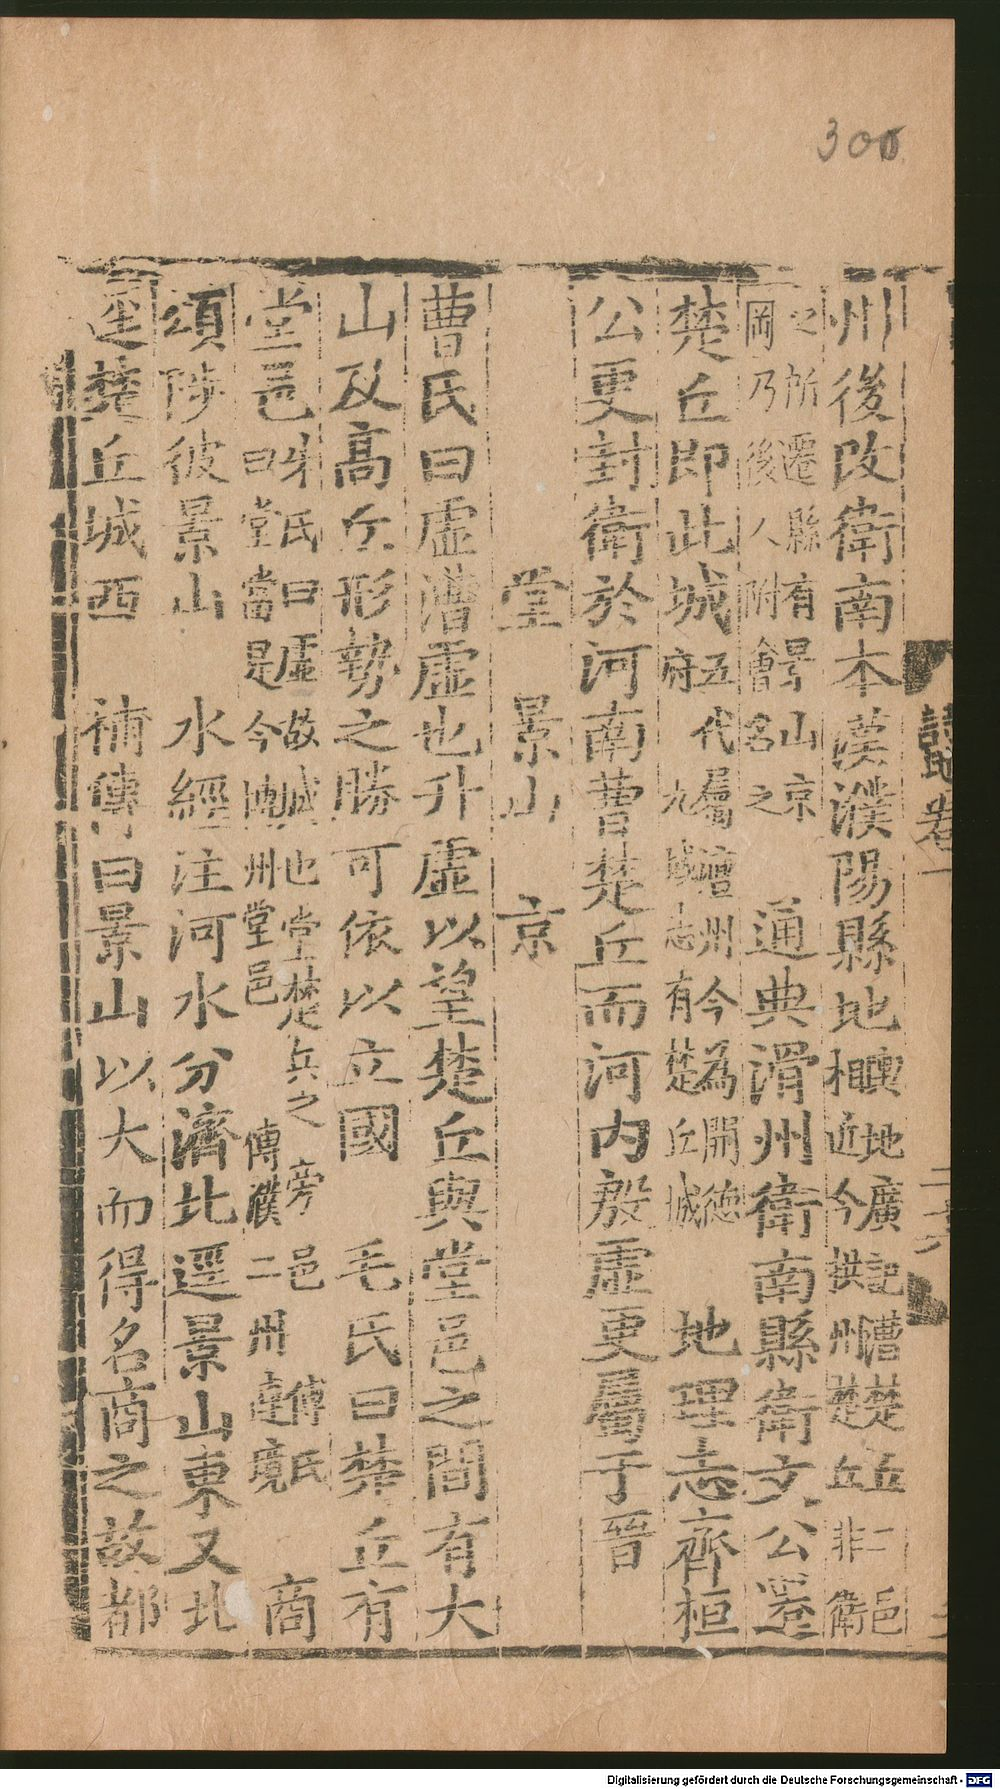 300
州後改衛南本漢濮陽縣地輿地廣記漕楚丘二邑
相近今拱州楚丘非衛
之所遷縣有景山京
岡乃後人附會名之通典滑州衛南縣衛文公遷
楚丘即此城五代屬澶州今為開德
府九域志有楚丘城地理志齊桓
公更封衛於河南曹楚丘而河內殷虛更屬于晉
堂 景山 京
曹氏曰虛漕虛也升虛以望楚丘與堂邑之間有大
山及高丘形勢之勝可依以立國 毛氏曰楚丘有
堂邑朱氏曰虛故城也堂楚丘之旁邑
曰堂當是今博州堂邑 傅氏
博濮二州連境 商
頌陟彼景山 水經注河水分濟北逕景山東又北
逕楚丘城西 補傳曰景山以大而得名商之故都
詩地 卷一
Digitalisierung gefördert durch die Deutsche Forschungsgemeinschaft - DFG